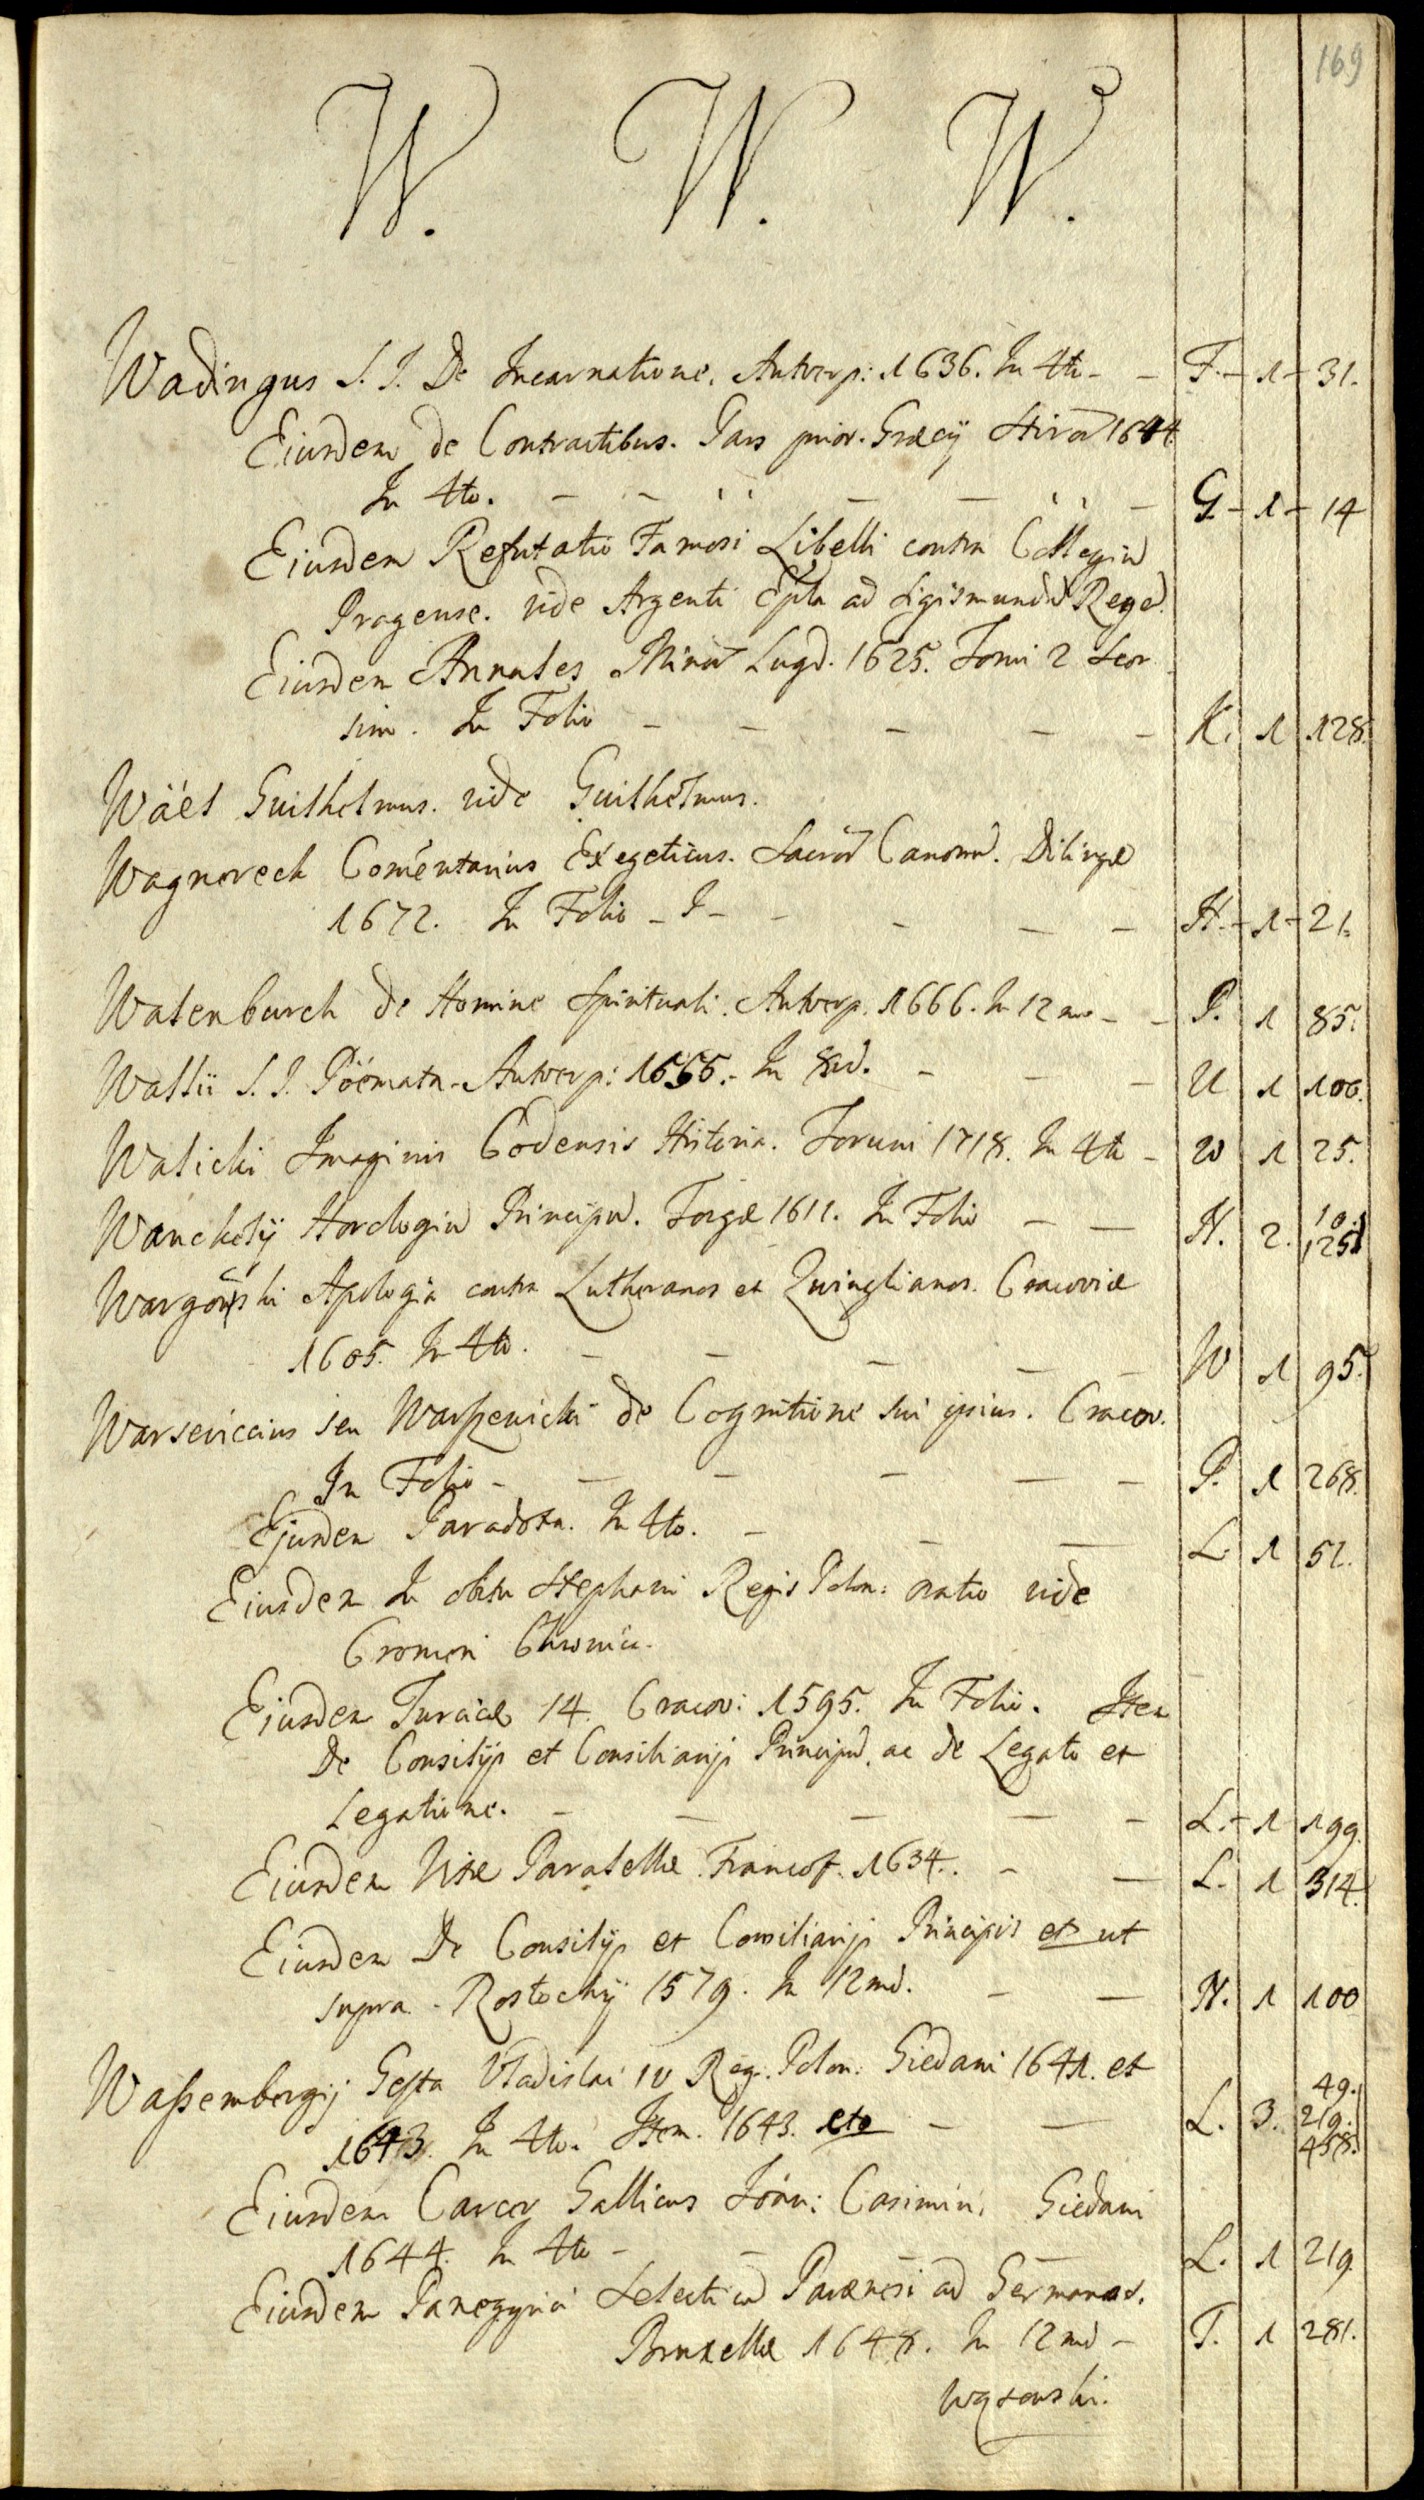 169
W. W. W.
Wadingus S. J. De Incarnatione. Antverp: 1636. In 4to - - F. - 1 - 31.
Eiusdem de Contractibus. Pars prior. Græcij Stiro 1644
In 4to. - - - - G - 1 - 14
Eiusdem Refutatio Famosi Libelli contra Collegiu
Pragense. vide Argenti Epla ad Sigismundu Rege.
Eiusdem Annales Mino Lugd. 1625. Tomi 2 Seor
sim. In Folio - - - - - K. 1 128.
Wäel Guilhelmus. vide Guilhelmus.
Wagnereck Comentarius Exegeticus. Sacro Canonu. Dilingæ
1672. In Folio - I - - - - - H. - 1 - 21.
Walenburch de Homine Spirituali. Antverp. 1666. In 12mo - - P. 1 85.
Wallii S. J. Pöemata. Antverp: 1656. - In 8vo. - - - U 1 100.
Walicki Imaginis Codensis Historia. Toruni 1718. In 4to - W 1 25.
Wanckelij Horologiu Principu. Torgæ 1611. In Folio - - N. 2. 10. 125
Wargocki Apologia contra Lutheranos et Zwinglianos. Cracoviæ
1605. In 4to. - - - - - W 1 95.
Warseviccius seu Warszewicki de Cognitione sui ipsius. Cracov.
In Folio - - - - - - P. 1 268.
Ejusdem Paradoxa. In 4to. - - - L 1 51.
Eiusdem In obitu Stephani Regis Polon: oratio vide
Cromeri Chronic.
Eiusdem Turcicæ 14. Cracov: 1595. In Folio. Item
De Consilijs et Consiliarijs Principu, ac de Legato et
Legatione. - - - - - L. - 1 199.
Eiusdem Vitæ Parallelæ Francof. 1634. - - L. 1 314.
Eiusdem De Consilijs et Consiliarijs Principis et ut
supra - Rostochij 1579. In 12mo. - - N. 1 100
Wassembergij Gesta Vladislai IV Reg. Polon. Giedani 1641. et
1643. In 4to. Item. 1643. etc - - L. 3. 49. 219. 458.
Eiusdem Carcer Gallicus Joan: Casimiri. Giedani
1644. In 4to - - - - L. 1 219.
Eiusdem Panegyrici Selecti cu Parænesi ad Germanos.
Bruxellæ 1648. In 12mo - T. 1 281.
Wąsowski.